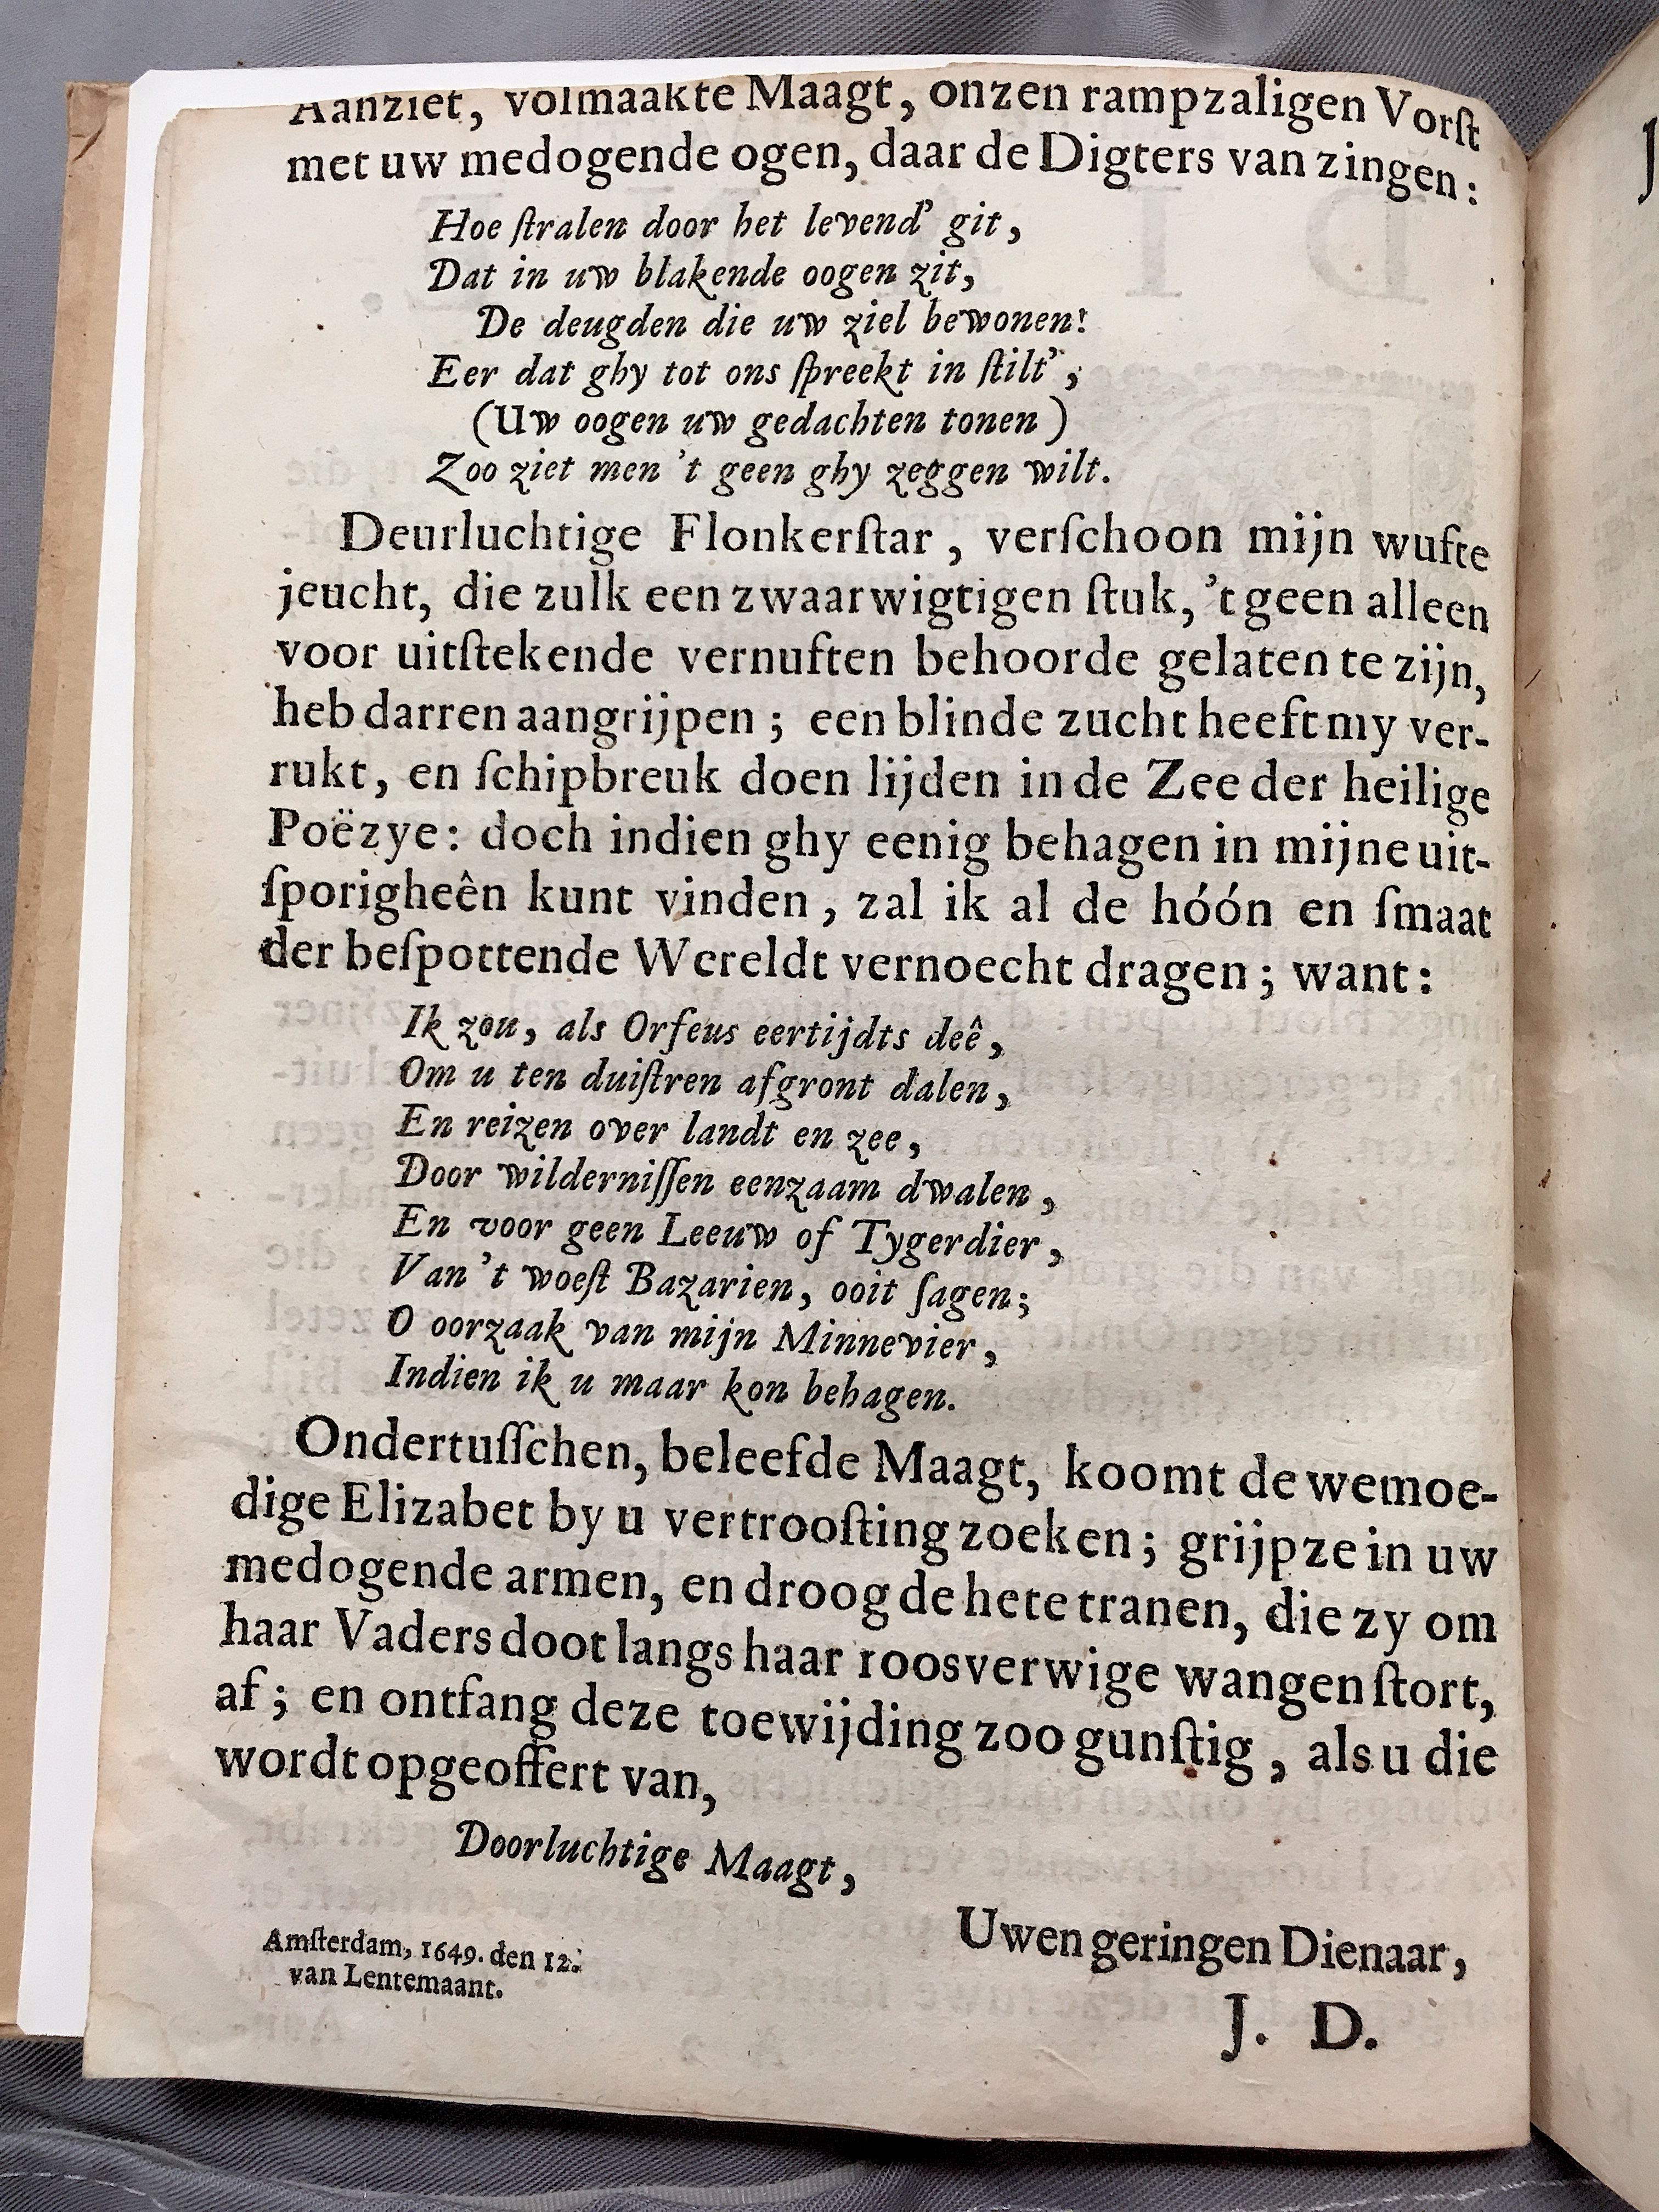 Aanziet, volmaakte Maagt, onzen rampzaligen Vorſt
met uw medogende ogen, daar de Digters van zingen:
Hoe ſtralen door het levend' git,
Dat in uw blakende oogen zit,
De deugden die uw ziel bewonen!
Eer dat ghy tot ons ſpreekt in ſtilt',
(Uw oogen uw gedachten tonen)
Zoo ziet men 't geen ghy zeggen wilt.
Deurluchtige Flonkerſtar, verſchoon mijn wufte
jeucht, die zulk een zwaarwigtigen ſtuk, 't geen alleen
voor uitſtekende vernuften behoorde gelaten te zijn,
heb darren aangrijpen; een blinde zucht heeft my ver-
rukt, en ſchipbreuk doen lijden in de Zee der heilige
Poëzye: doch indien ghy eenig behagen in mijne uit-
ſporigheên kunt vinden, zal ik al de hóón en ſmaat
der beſpottende Wereldt vernoecht dragen; want:
Ik zou, als Orfeus eertijdts deê,
Om u ten duiſtren afgront dalen,
En reizen over landt en zee,
Door wilderniſſen eenzaam dwalen,
En voor geen Leeuw of Tygerdier,
Van 't woeſt Bazarien, ooit ſagen;
O oorzaak van mijn Minnevier,
Indien ik u maar kon behagen.
Ondertuſſchen, beleefde Maagt, koomt de wemoe-
dige Elizabet by u vertrooſting zoeken; grijp ze in uw
medogende armen, en droog de hete tranen, die zy om
haar Vaders doot langs haar roosverwige wangen ſtort,
af; en ontfang deze toewijding zoo gunſtig, als u die
wordt opgeoffert van,
Doorluchtige Maagt,
Uwen geringen Dienaar,
J. D.
Amſterdam, 1649. den 12.
van Lentemaant.
J